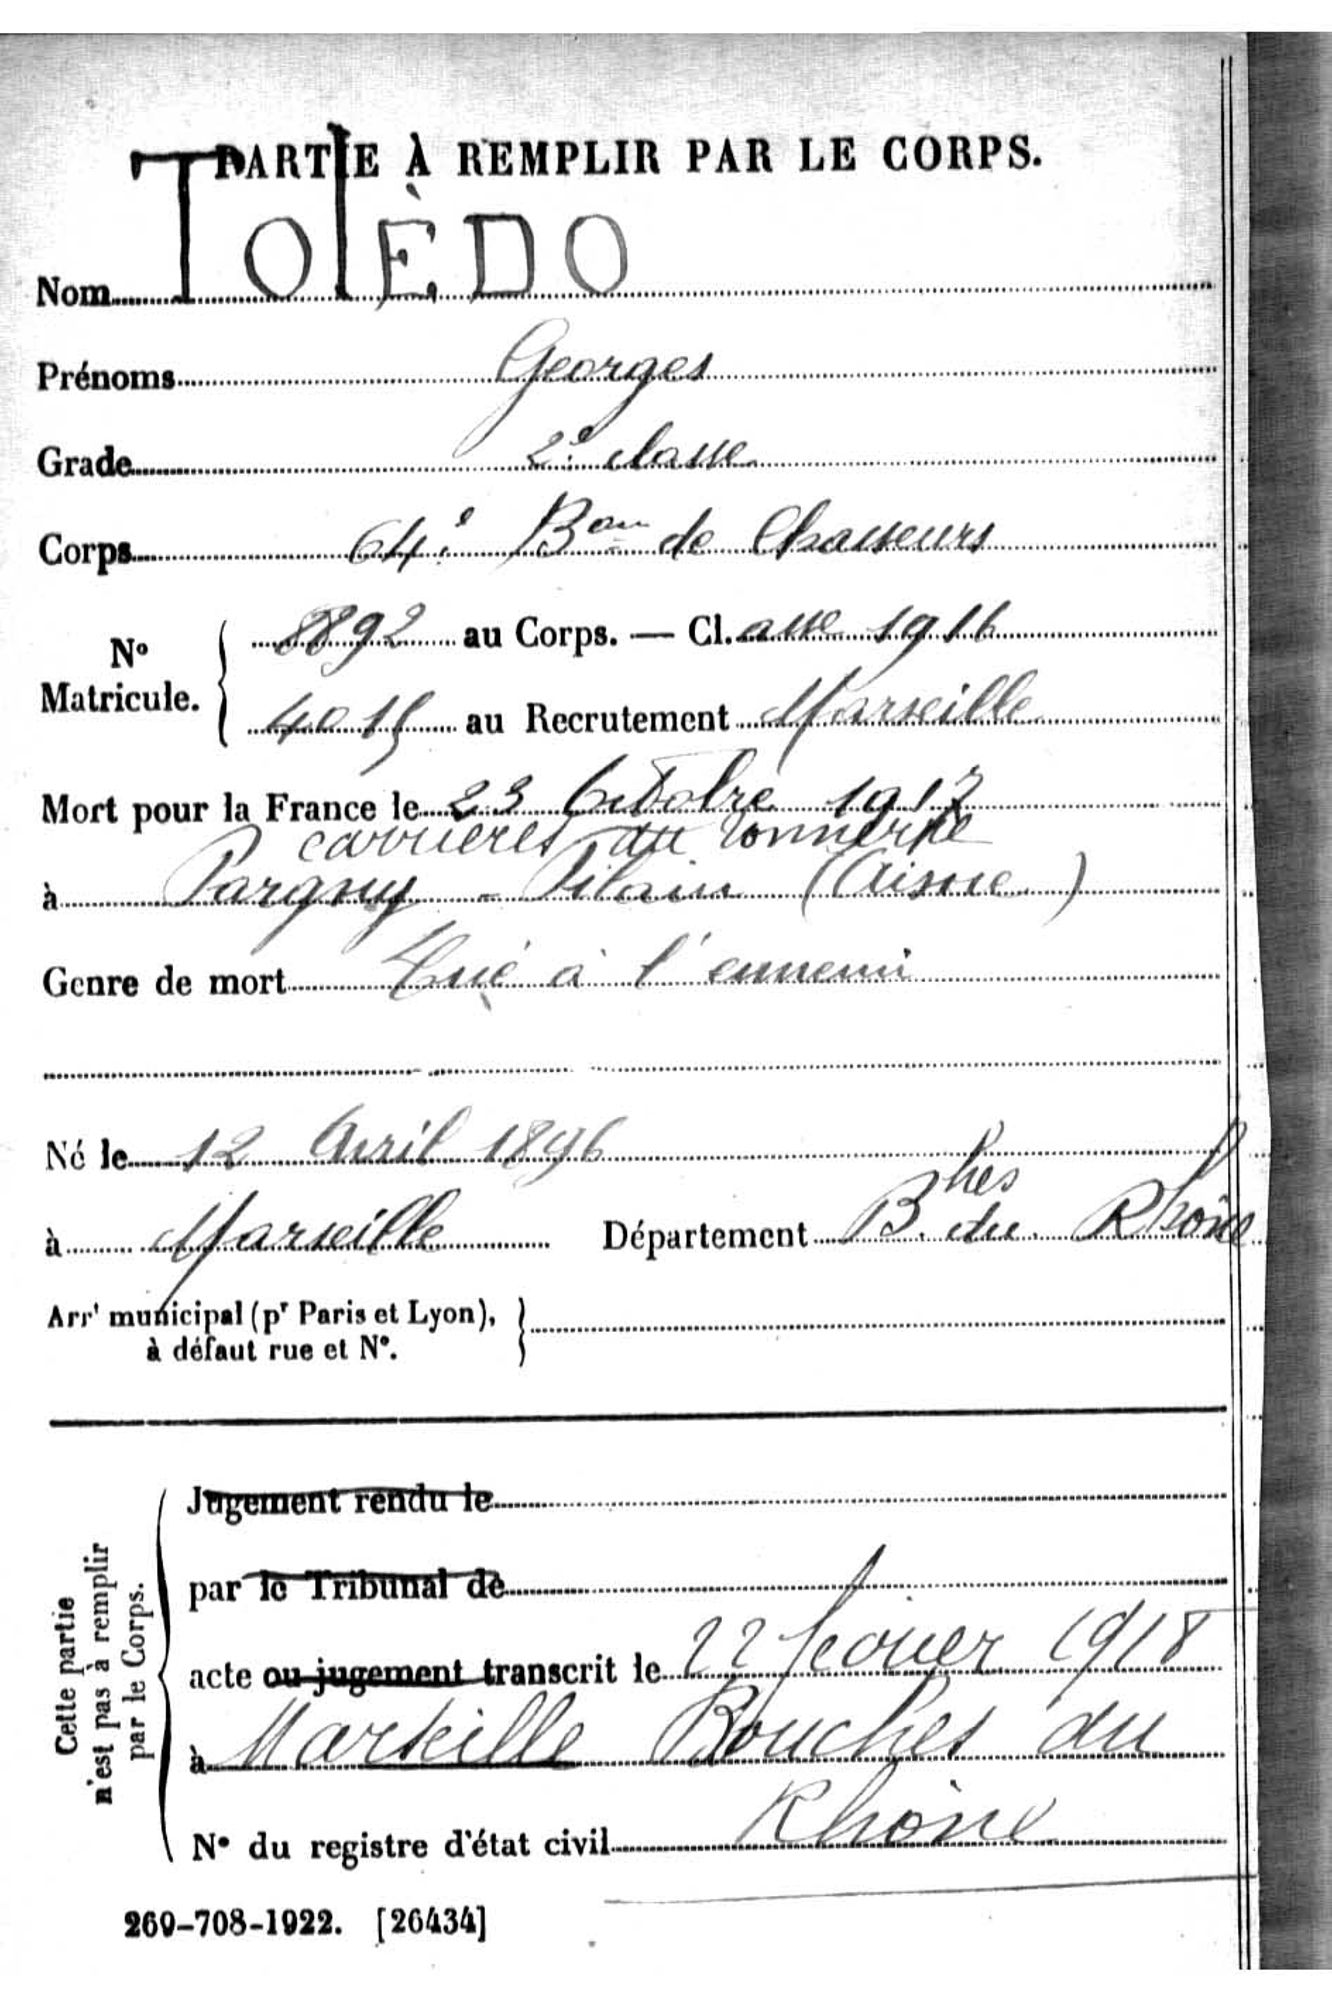 PARTIE À REMPLIR PAR LE CORPS.
Nom TOLÈDO
Prénoms Georges
Grade 2e classe
Corps 64e Bon de Chasseurs
No Matricule. { 8892 au Corps. — Cl.asse 1916
4015 au Recrutement Marseille
Mort pour la France le 23 Octobre 1917
carrières du
à Pargny - Filain (Aisne)
Genre de mort Tué à l'ennemi
Né le 12 Avril 1896
à Marseille Département B.hes du Rhône
Arrt municipal (pr Paris et Lyon),
à défaut rue et N°.
Cette partie
n'est pas à remplir
par le Corps.
Jugement rendu le
par le Tribunal de
acte ou jugement transcrit le 22 février 1918
à Marseille Bouches du
Rhône
N° du registre d'état civil
269-708-1922. [26434]